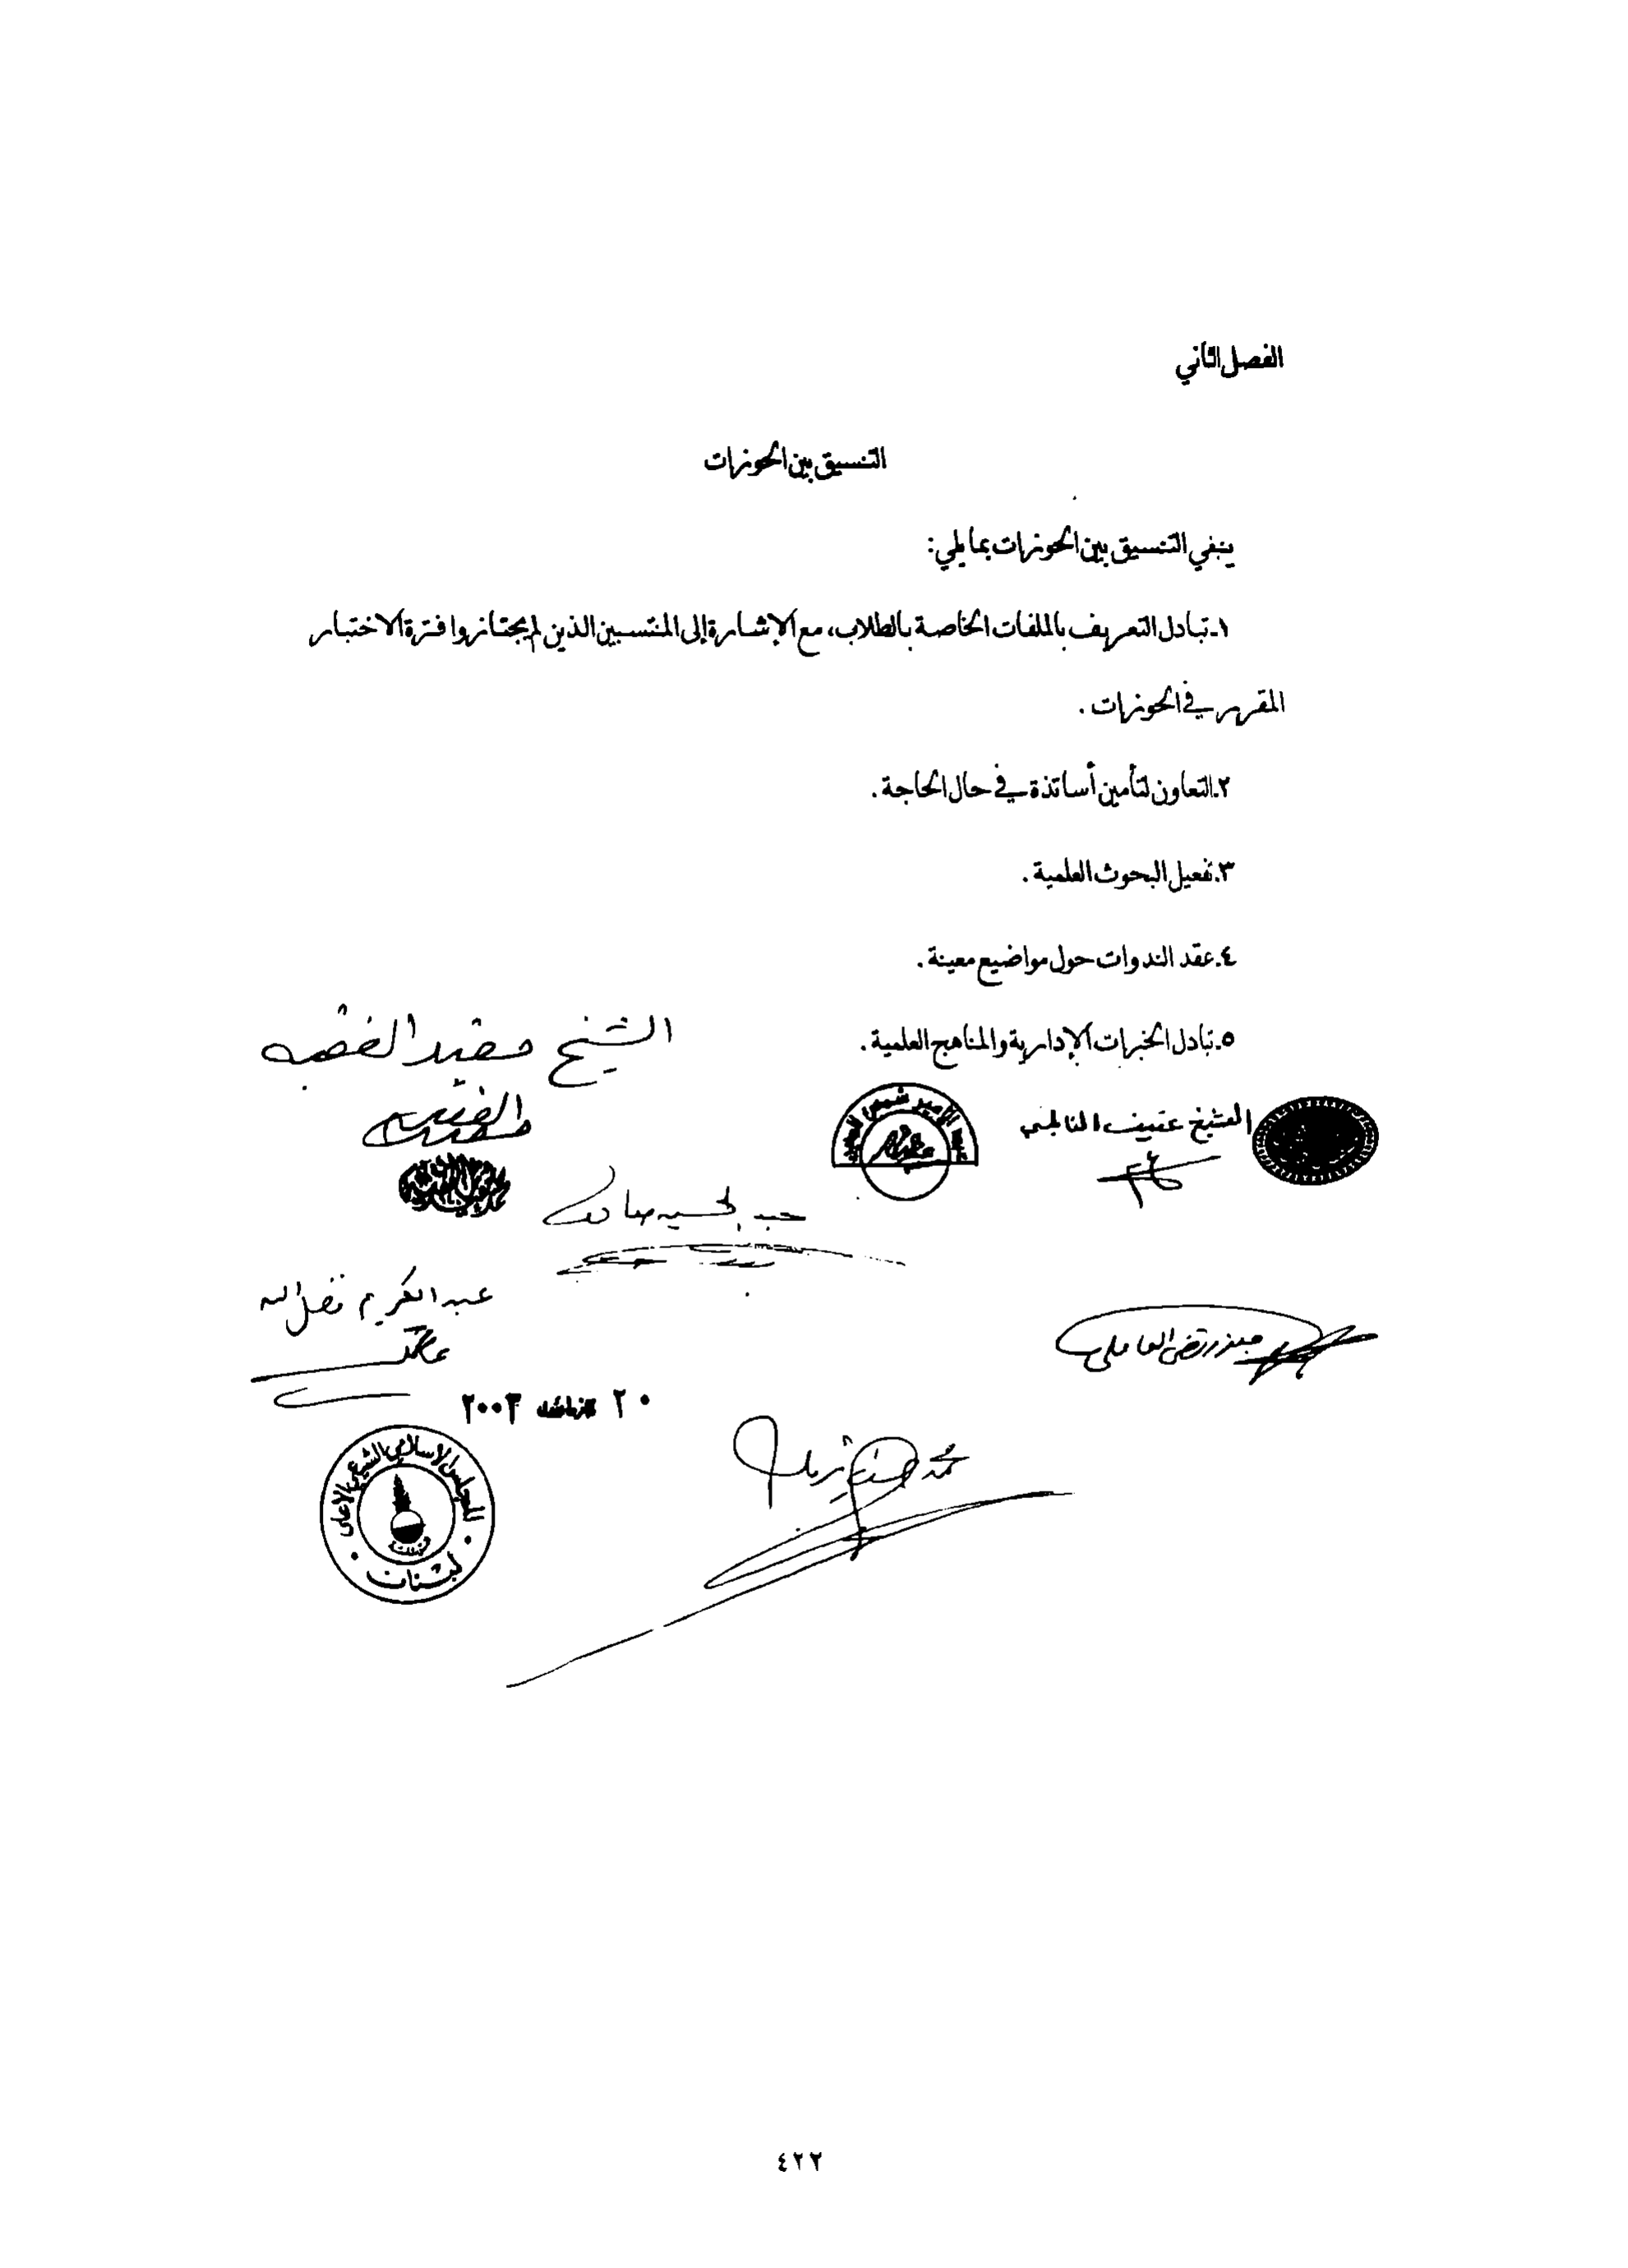 الفصل الثاني
التنسيق بين الحوزات
ينبغي التنسيق بين الحوزات بما يلي:
١ـ تبادل التعريف بالملفات الخاصة بالطلاب، مع الإشارة إلى المنتسبين الذين لم يجتازوا فترة الاختبار
المقرر في الحوزات .
٢ـ التعاون لتأمين أساتذة في حال الحاجة .
٣. تفعيل البحوث العلمية .
٤. عقد الندوات حول مواضيع معينة .
٥. تبادل الخبرات الإدارية والمناهج العلمية .
الشيخ مفيد الفقيه
الشيخ عفيف النابلسي
الأمير شمس الدين
صادق
عبد الكريم فضل الله
مرتضى العاملي
٢٠ ٢٠٠٣
محمد
المجلس الاسلامي الشيعي الاعلى
لبنان
٤٢٢